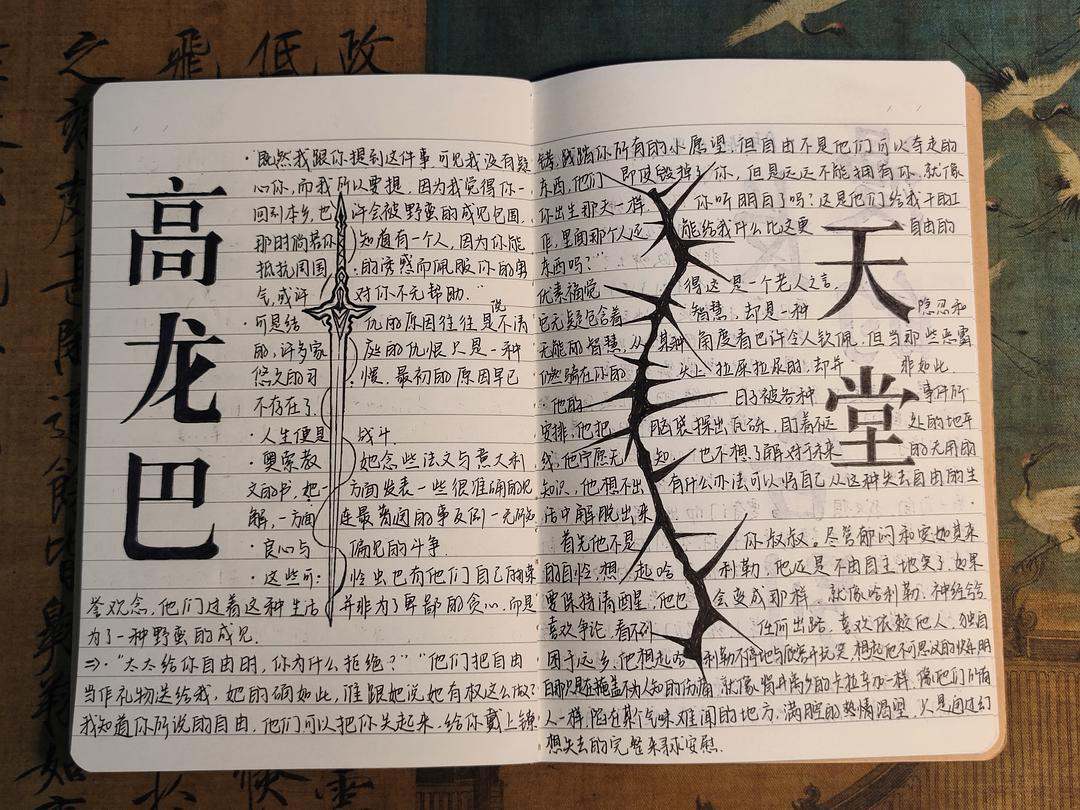 之 飛 低 政
高龙巴
·“既然我跟你提到这件事,可见我没有疑
心你,而我所以要提,因为我觉得你一
回到本乡,也许会被野蛮的成见包围,
那时倘若你知道有一个人,因为你能
抵抗周围的诱惑而佩服你的勇
气,或许对你不无帮助.”
·可是结仇的原因往往是不清
的,许多家庭的仇恨只是一种
悠久的习惯,最初的原因早已
不存在了.
·人生便是战斗.
·奥索教她念些法文与意大利
文的书,她一方面发表一些很准确的见
解,一方面连最普通的事
·良心与偏见的斗争.
·这些可怜虫也有他们自己的荣
誉观念,他们过着这种生活并非为了卑鄙的贪心,而是
为了一种野蛮的成见.
⇒·“太太给你自由时,你为什么拒绝?”“他们把自由
当作礼物送给我,她的确如此,谁跟她说她有权这么做?
我知道你所说的自由,他们可以把你关起来,给你戴上镣
天堂
铐,践踏你所有的小愿望,但自由不是他们可以夺走的
东西,他们即便毁掉了你,但是远远不能拥有你,就像
你出生那天一样.你听明白了吗?这是他们给我干的工
作,里面那个人还能给我什么比这更自由的
东西吗?”
优素福觉得这是一个老人之言,
它无疑包含着智慧,却是一种隐忍和
无能的智慧,从某种角度看也许令人钦佩,但当那些恶霸
仍然骑在你的头上拉屎拉尿时,却并非如此.
·他的目的被各种事件所
安排,他把脑袋探出瓦砾,盯着不远处的地平
线,他宁愿无知,也不想了解对于未来的无用的
知识,他想不出有什么办法可以将自己从这种失去自由的生
活中解脱出来
首先他不是你叔叔,尽管郁闷和突如其来
的自怜,想起哈利勒,他还是不由自主地笑了.如果
要保持清醒,他也会变成那样,就像哈利勒,神经兮兮
喜欢争论,看不到任何出路,喜欢依赖他人,独自
困于远乡.他想起哈利勒不停地与顾客开玩笑,想起他不可思议的快乐,明
白那只是在掩盖不为人知的伤痛,就像背井离乡的卡拉辛加一样,像他们所有
人一样,陷在某个气味难闻的地方,满腔的热情渴望,只是通过幻
想失去的完整来寻求安慰.